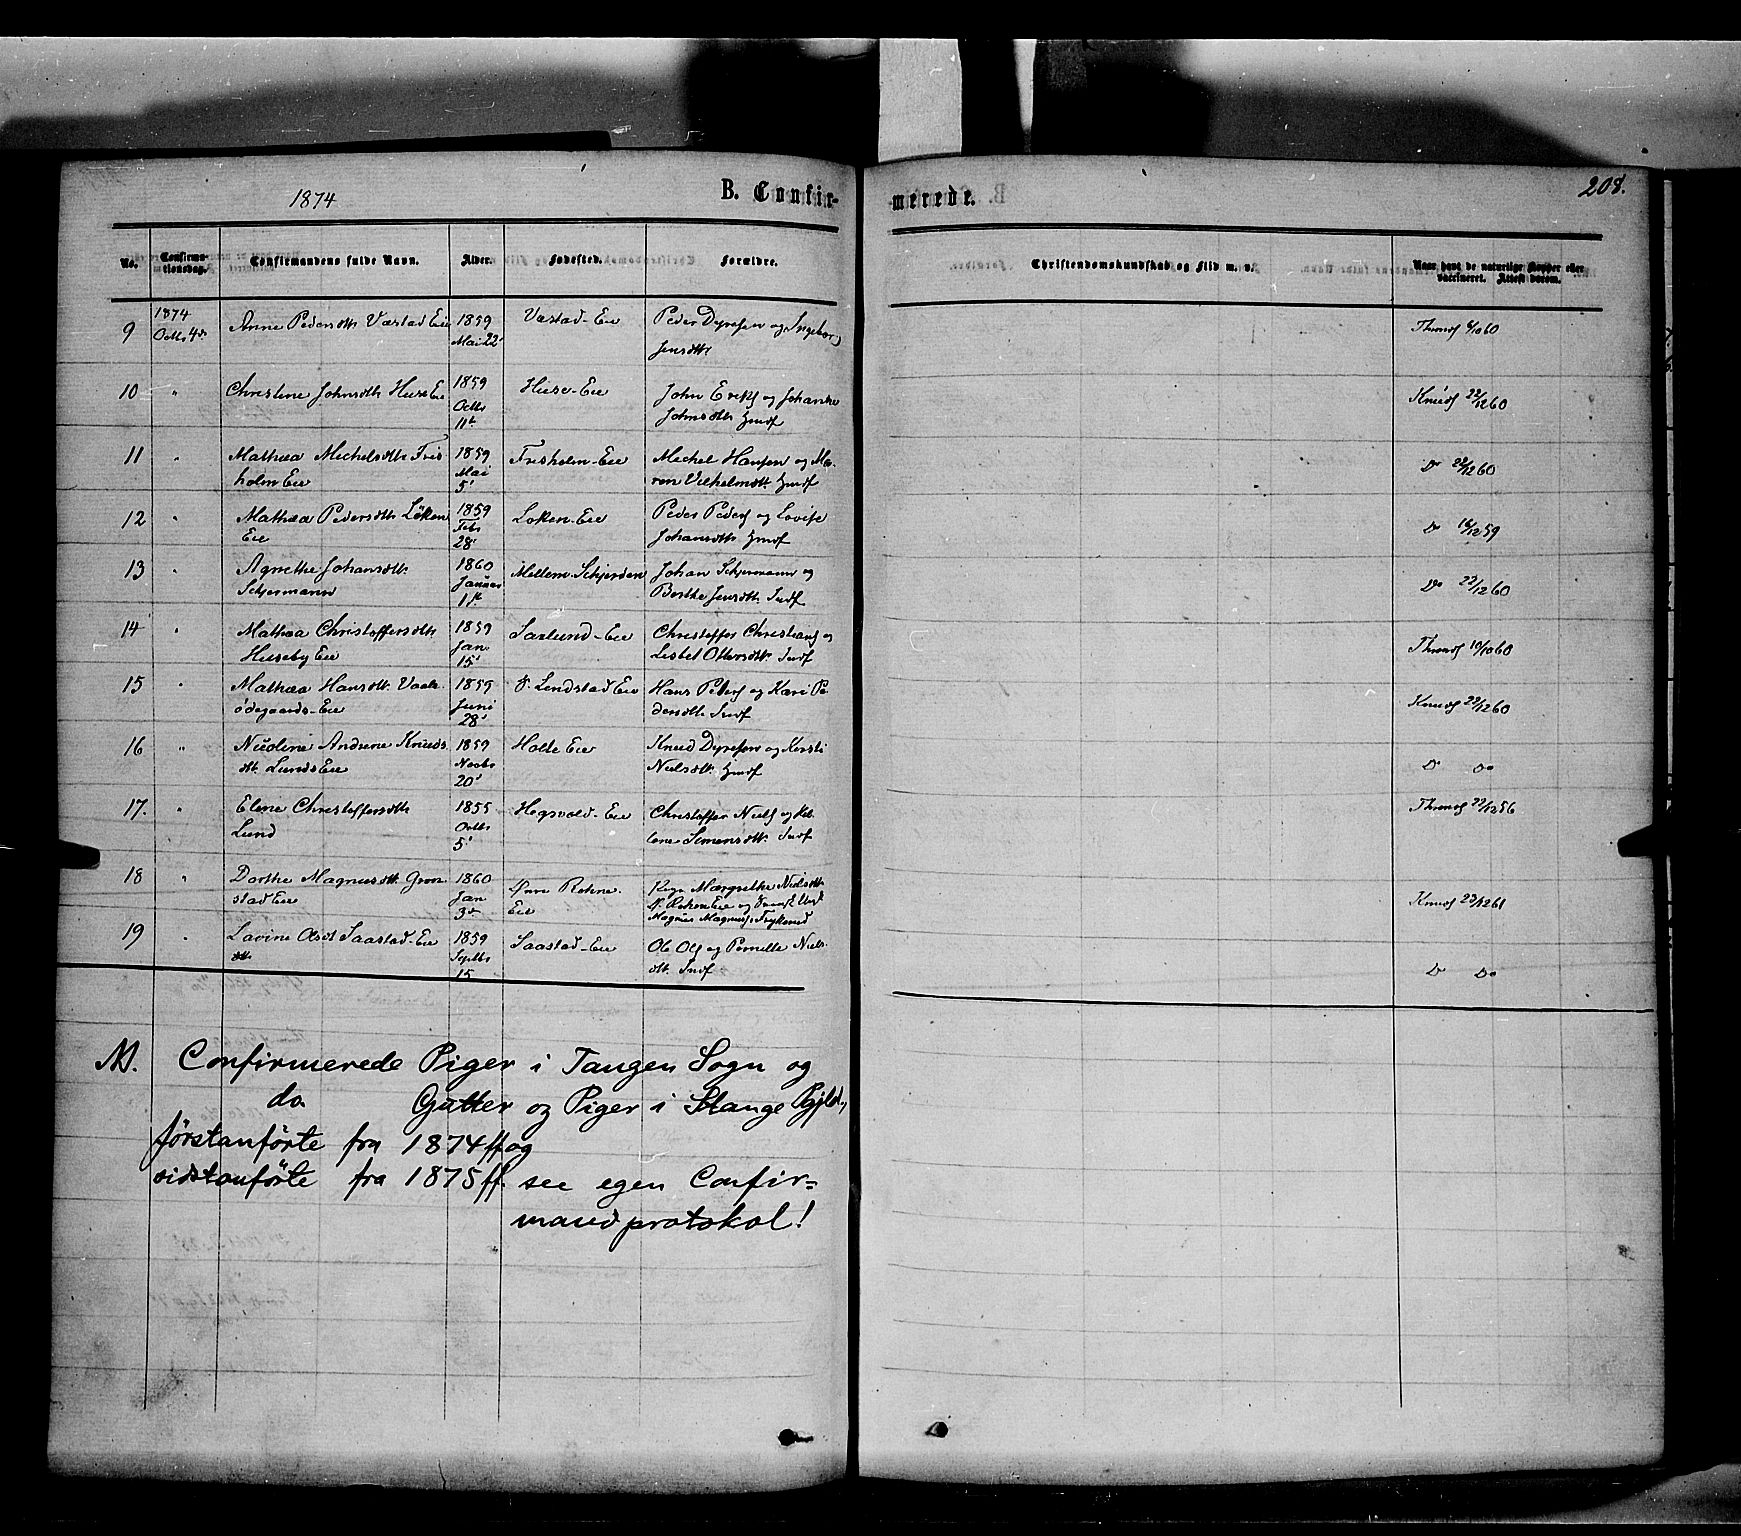 1874
B. Confir-
merede.
208.
No.
Confirma-
tionsdag.
Confirmandens fulde Navn.
Alder.
Fødested.
Forældre.
Christendomskundskab og Flid m. v.
Naar havt de naturlige Kopper eller
vaccineret. Attest derom.
9 1874 Octb 4de Anne Pedersdtr Væstad Eie 1859 Mai 22 Væstad-Eie Peder Dyresen og Ingebor
Jensdtr
Thrond 6/10 60
10 " Christine Johnsdtr Huse Eie 1859 Octb 11te Huse-Eie John Eriks og Johanne
Johnsdtr Gmdf
Knuds 22/12 60
11 " Mathea Mechelsdtr Fris
holm Eie 1859 Mai 5 Frisholm-Eie Mechel Hansen og Ma-
ren Vilhelmsdtr. Gmdf
Do 22/12 60
12 " Mathea Pedersdtr Löken
Eie 1859 Febr 28 Loken-Eie Peder Peders og Lovise
Johansdtr Gmdf
Do 16/12 59
13 " Agnethe Johansdtr.
Schjermann 1860 Januar 11te Mellem-Schjerden Johan Schjermann og
Berthe Jensdtr. Indf
Do 22/12 60
14 " Mathea Christoffersdtr
Huseby Eie 1859 Jan. 15 Saxlund-Eie Christoffer Christians og
Lisbet Ottersdtr. Indf
Thrond 10/10 60
15 " Mathea Hansdtr. Vaale
ödegaards-Eie 1859 Juni 28 Lindstad Eie Hans Peders og Kari Pe
dersdtr Indf
Knuds 22/12 60
16 " Nicoline Andrine Knuds
dtr. Lunds Eie 1859 Novbr 20 Holte Eie Knud Dyresen og Kersti
Nielsdtr. Gmdf
Do Do
17. " Eline Christoffersdtr
Lund 1855 Octbr 5 Hogsvold-Eie Christoffer Niels og He-
lene Simensdtr. Indf
Thrond 22/12 56
18 " Dorthe Magnusdtr. Gron
stad Eie 1860 Jan 3de Övre Rohne
Eie Pige Margrethe Nielsdtr
N. Rohen Eie og Svensk Ungk
Magnus Magnuss. Frykerud
Knuds 22/12 61
19 " Lavine Olsdt Saastad-Eie
dtr 1859 Septbr 15 Saastad-Eie Ole Ols og Pernille Niels-
dtr. Indf
Do Do
NB. Confirmerede Piger i Tangen Sogn og
do. Gutter og Piger i Stange Pgjld.,
förstanförte fra 1874 ff og
sidstanförte fra 1875 ff. see egen Confir=
mandprotokol!